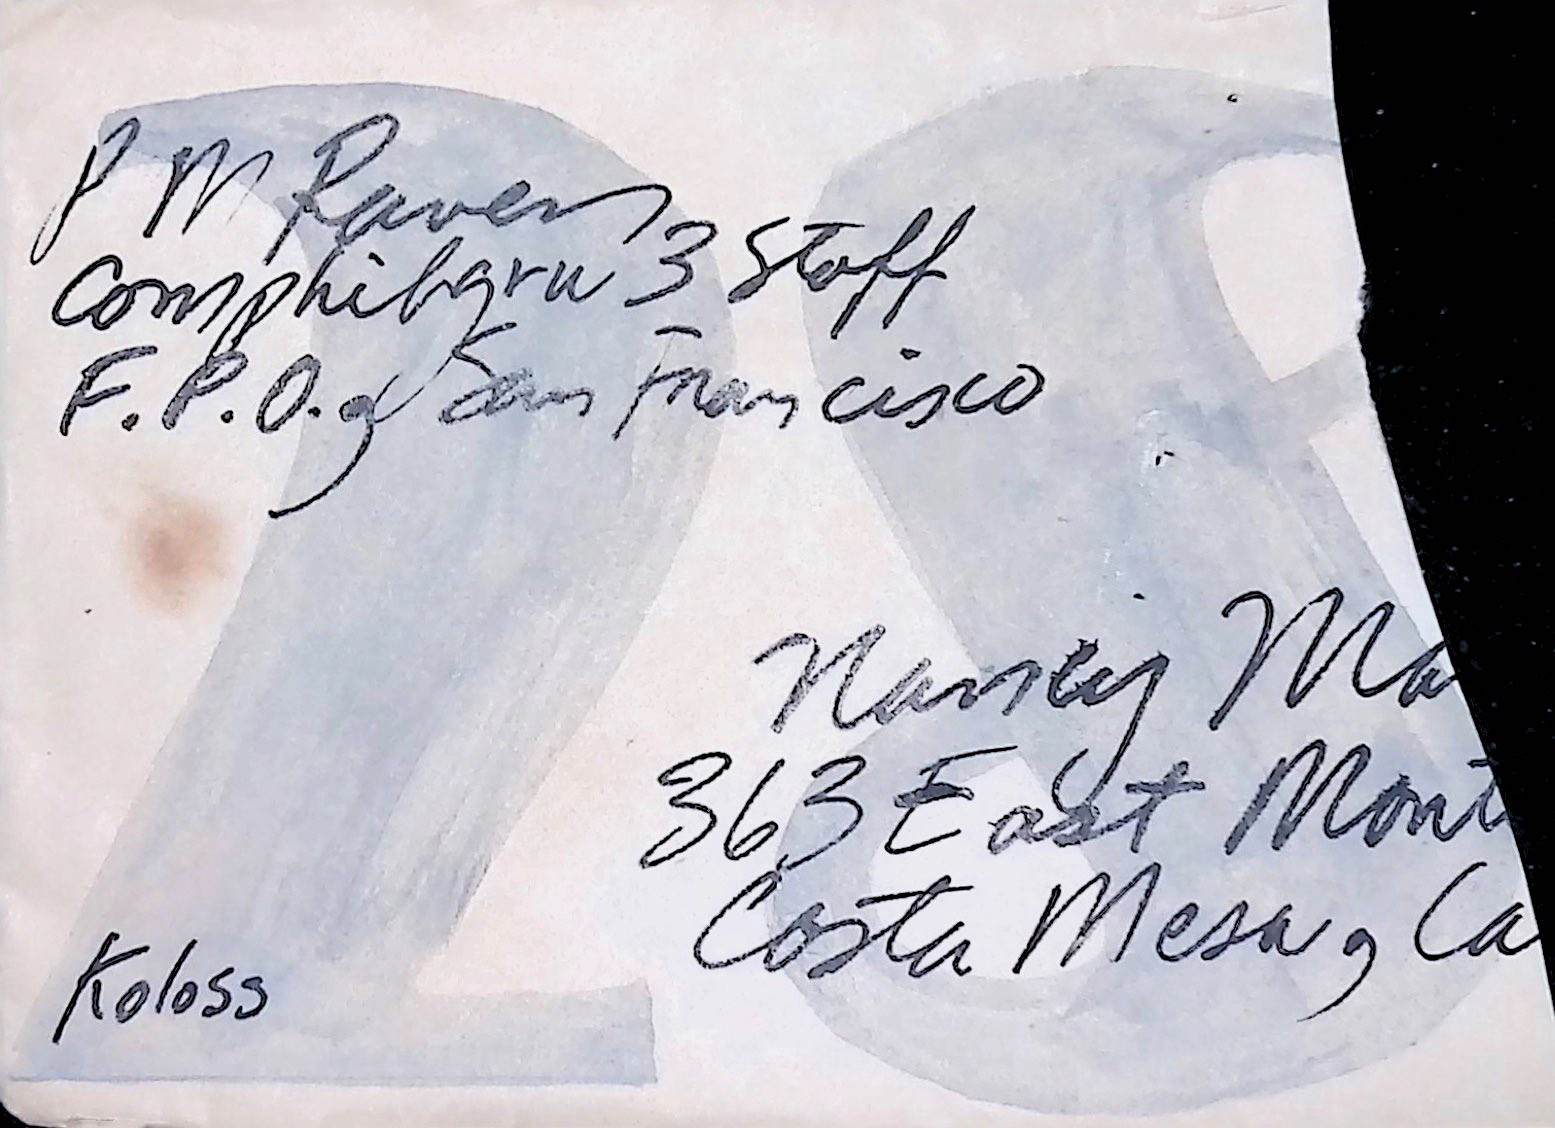 P M Ravens
Comphibgru 3 Staff
F.P.O., San Francisco
28
Nancy Ma
363 East Mont
Costa Mesa, Ca
Koloss